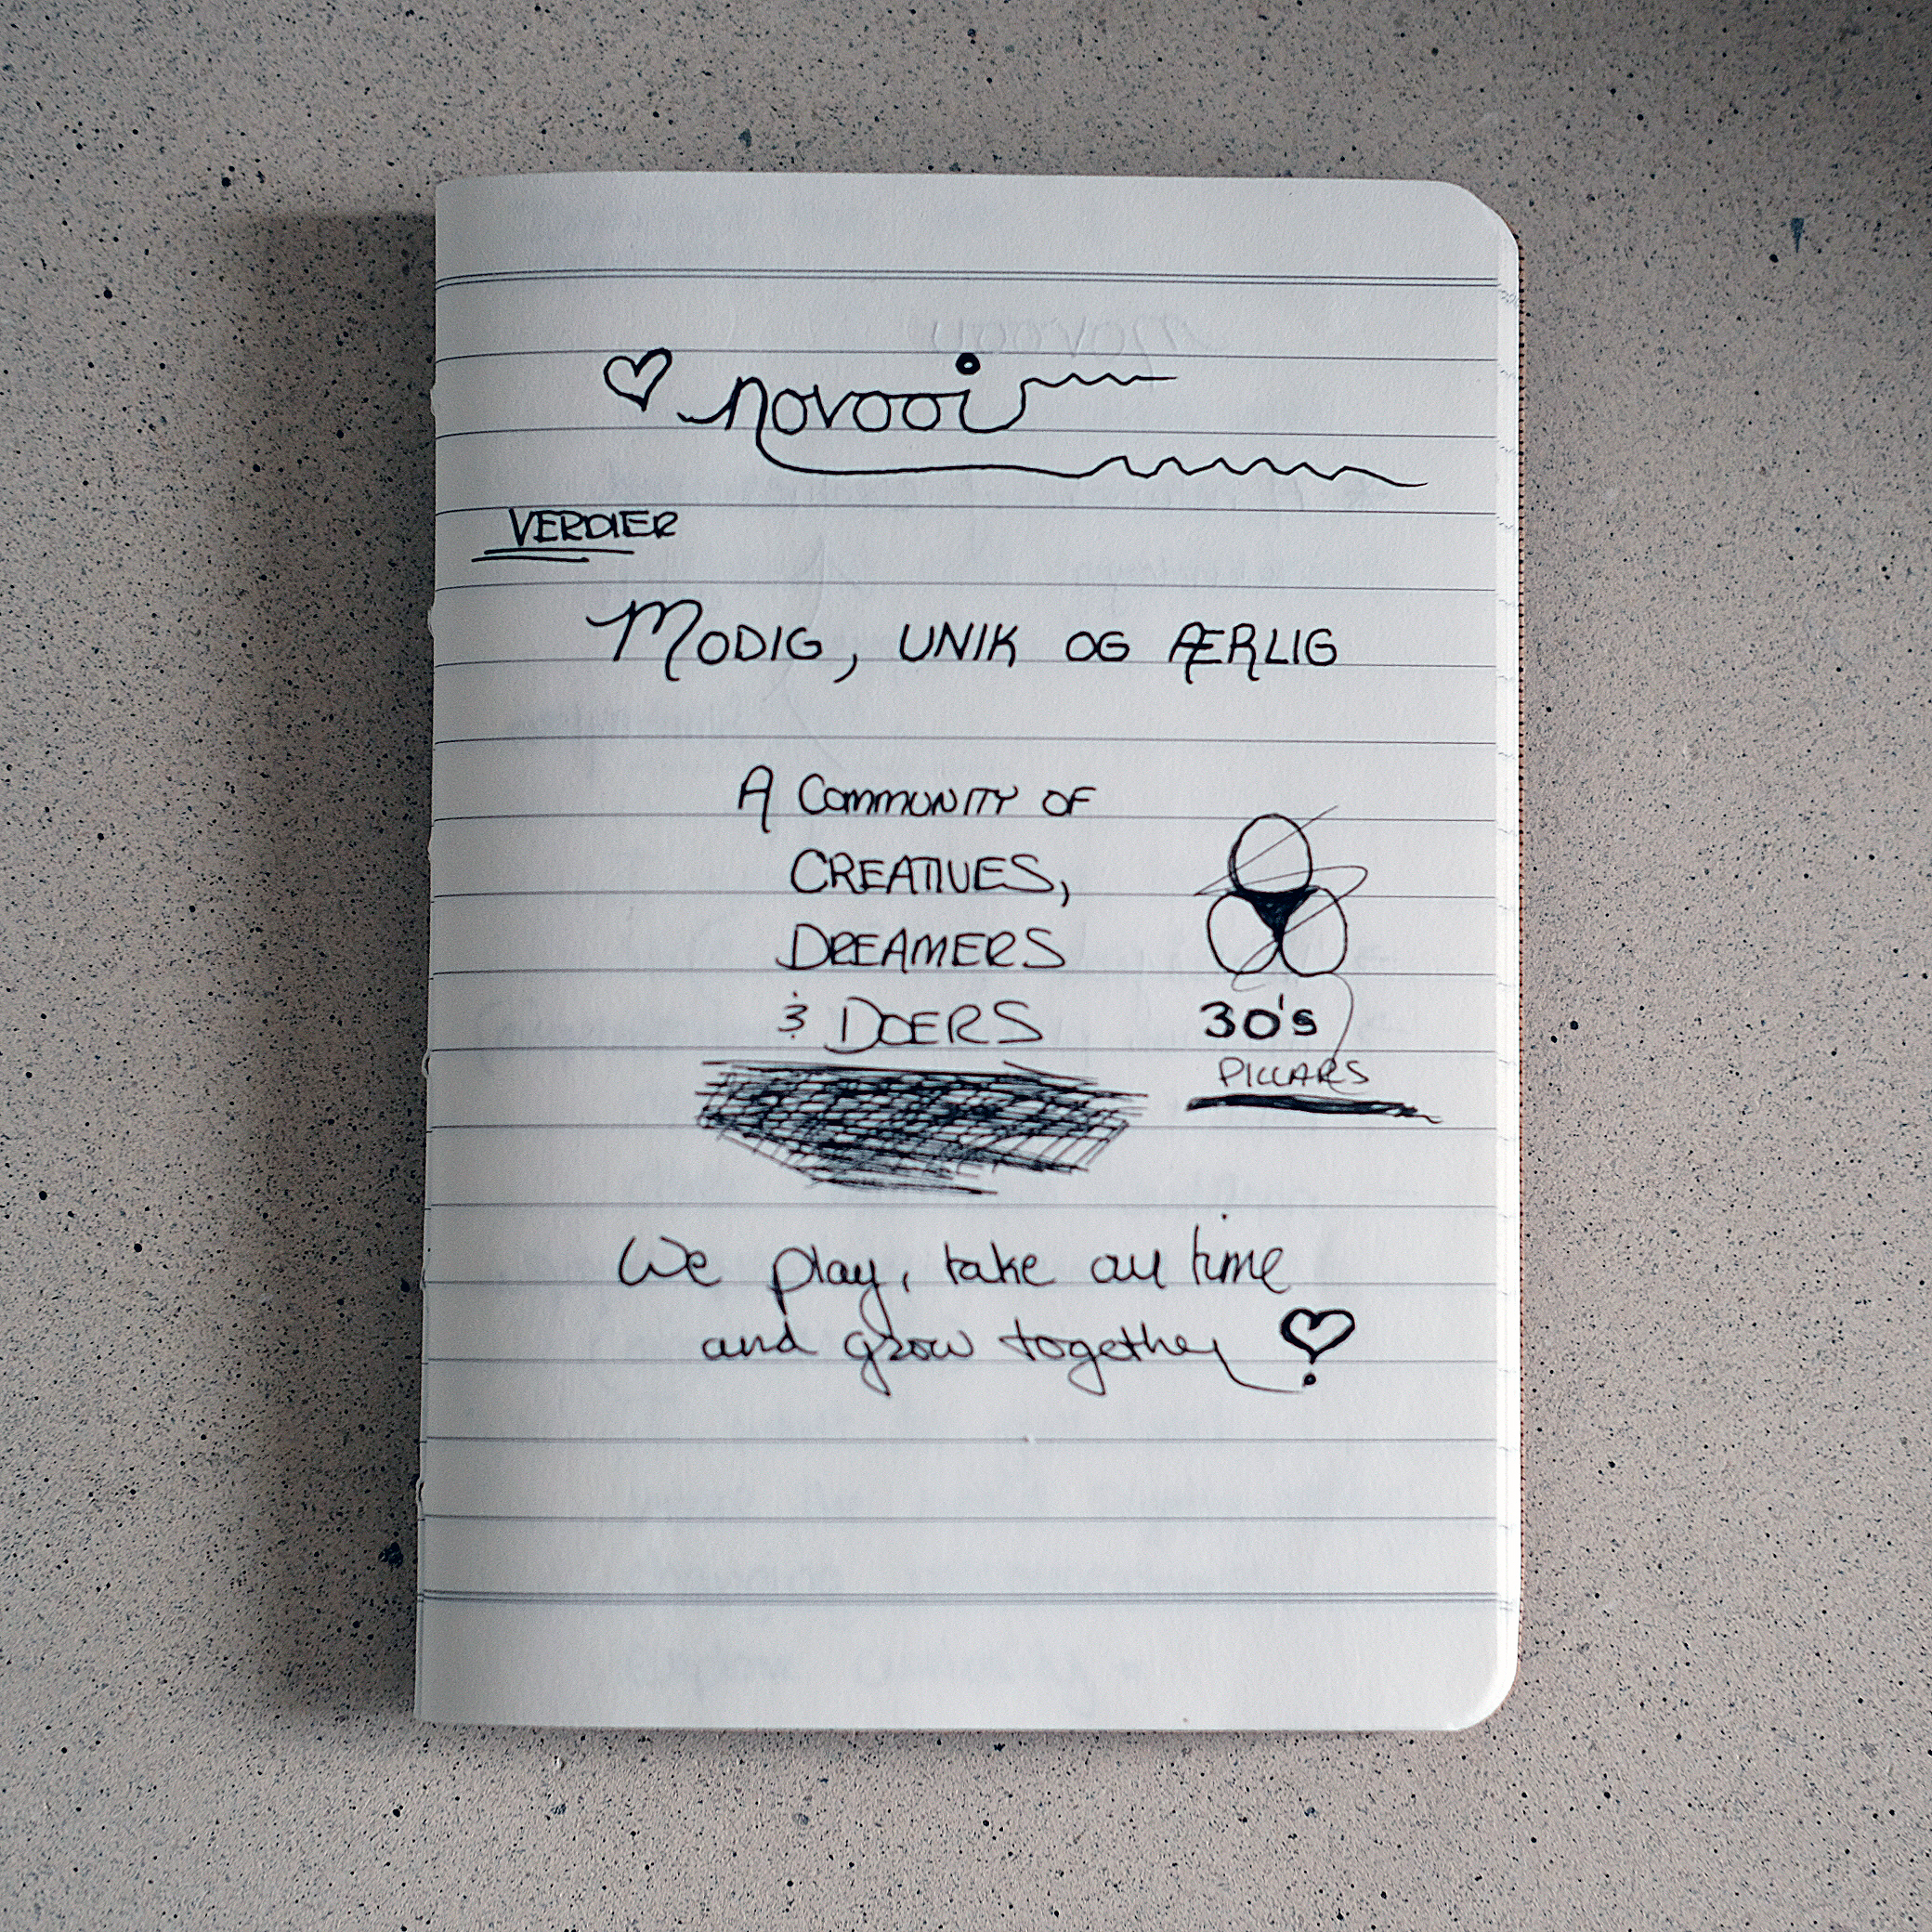 novooi
VERDIER
MODIG, UNIK OG ÆRLIG
A COMMUNITY OF
CREATIVES,
DREAMERS
& DOERS
30's
PILLARS
We play, take all time
and grow together